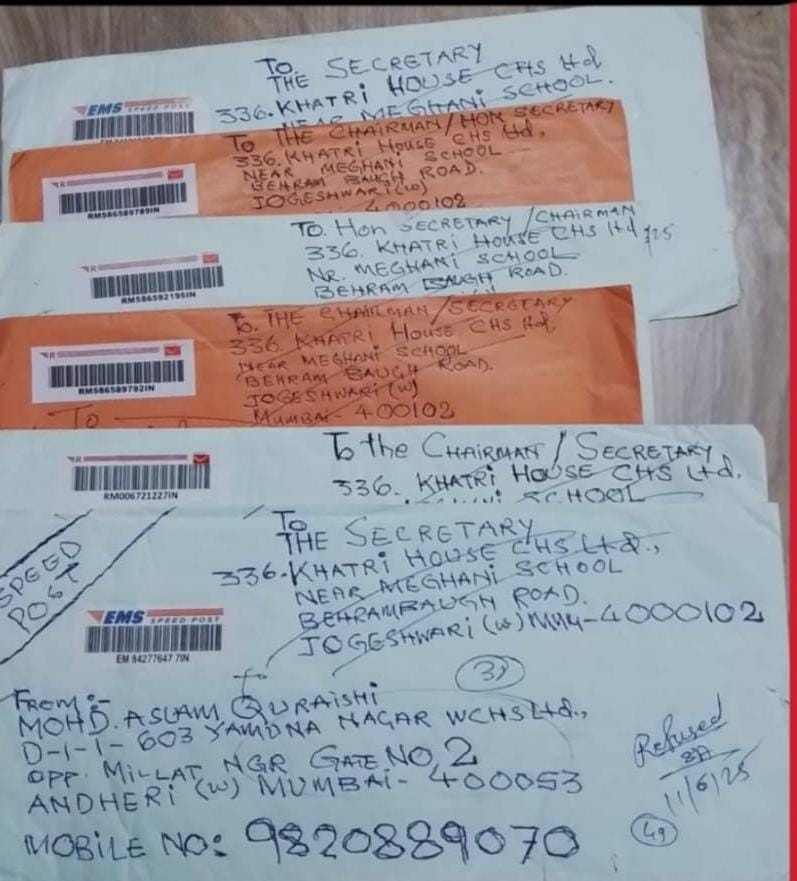 To
THE SECRETARY
336. KHATRI HOUSE CHS Ltd
NEAR MEGHANI SCHOOL.
EMS SPEED POST
To THE CHAIRMAN/HON SECRETARY
336. KHATRI HOUSE CHS Ltd,
NEAR MEGHANI SCHOOL
BEHRAM BAUGH ROAD.
JOGESHWARI (W)
4000102
R
RM586589789IN
To. Hon SECRETARY/CHAIRMAN
336. KHATRI HOUSE CHS Ltd
NR. MEGHANI SCHOOL
BEHRAM BAUGH ROAD.
/25
R
RM586592195IN
To. THE CHAIRMAN/SECRETARY
336. KHATRI HOUSE CHS Ltd,
NEAR MEGHANI SCHOOL
BEHRAM BAUGH ROAD.
JOGESHWARI (W)
MUMBAI - 400102
R
RM586589792IN
To
To the CHAIRMAN / SECRETARY
336. KHATRI HOUSE CHS Ltd.
SCHOOL
R
RM006721227IN
To
THE SECRETARY
336-KHATRI HOUSE CHS Ltd.,
NEAR MEGHANI SCHOOL
BEHRAMBAUGH ROAD.
JOGESHWARI (W) MUM-4000102
SPEED
POST
EMS SPEED POST
EM 84277647 7IN
FROM:-
MOHD. ASLAM QURAISHI
D-1-1-603 YAMUNA NAGAR WCHS Ltd.,
OPP. MILLAT NGR GATE NO, 2
ANDHERI (W) MUMBAI - 400053
MOBILE NO: 9820889070
Refused
11/6/25
49